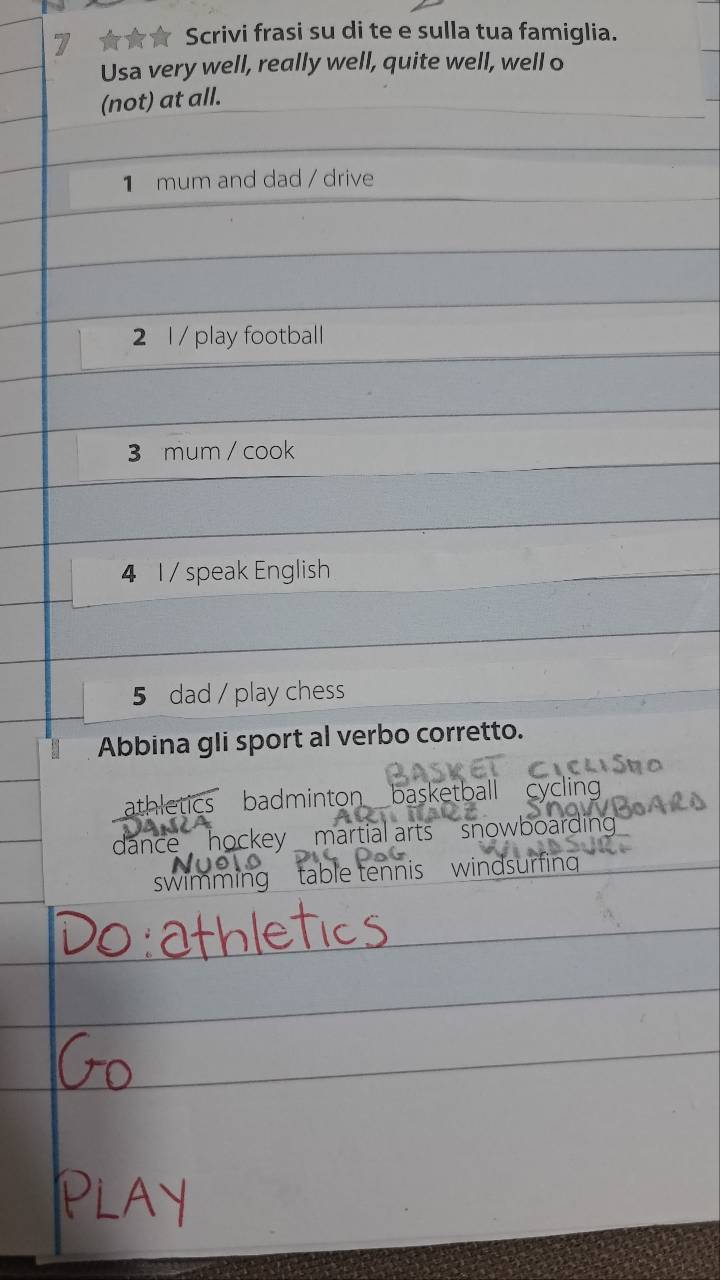 7 ☆☆☆ Scrivi frasi su di te e sulla tua famiglia.
Usa very well, really well, quite well, well o
(not) at all.
1 mum and dad / drive
2 I / play football
3 mum / cook
4 I / speak English
5 dad / play chess
Abbina gli sport al verbo corretto.
BASKET CICLISMO
athletics badminton basketball cycling
DANZA ARTI MARZ. SNOWBOARD
dance hockey martial arts snowboarding
NUOTO WINDSURF
swimming table tennis windsurfing
DO: athletics
GO
PLAY